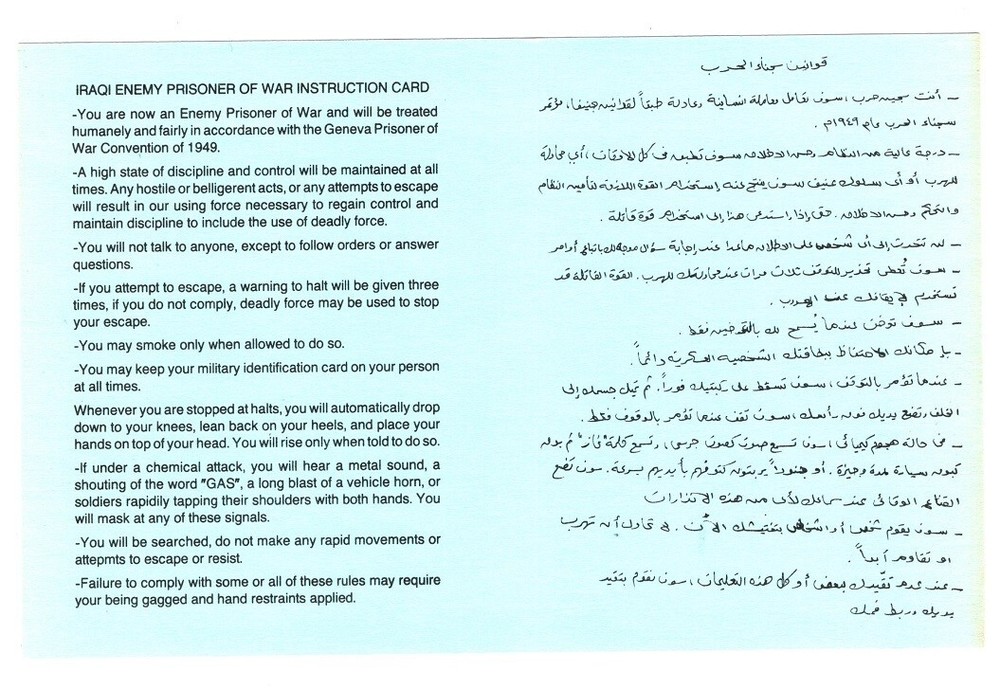 IRAQI ENEMY PRISONER OF WAR INSTRUCTION CARD
-You are now an Enemy Prisoner of War and will be treated
humanely and fairly in accordance with the Geneva Prisoner of
War Convention of 1949.
-A high state of discipline and control will be maintained at all
times. Any hostile or belligerent acts, or any attempts to escape
will result in our using force necessary to regain control and
maintain discipline to include the use of deadly force.
-You will not talk to anyone, except to follow orders or answer
questions.
-If you attempt to escape, a warning to halt will be given three
times, if you do not comply, deadly force may be used to stop
your escape.
-You may smoke only when allowed to do so.
-You may keep your military identification card on your person
at all times.
Whenever you are stopped at halts, you will automatically drop
down to your knees, lean back on your heels, and place your
hands on top of your head. You will rise only when told to do so.
-If under a chemical attack, you will hear a metal sound, a
shouting of the word "GAS", a long blast of a vehicle horn, or
soldiers rapidily tapping their shoulders with both hands. You
will mask at any of these signals.
-You will be searched, do not make any rapid movements or
attepmts to escape or resist.
-Failure to comply with some or all of these rules may require
your being gagged and hand restraints applied.
قوانين سجناء الحرب
- أنت سجين حرب، سوف تعامل معاملة انسانية وعادلة طبقاً لقوانين جنيف، مؤتمر
سجناء الحرب عام ١٩٤٩م.
- درجة عالية من النظام وحسن الاطلاق سوف تطبق في كل الاوقات، أي محاولة
للهرب أو أي سلوك عنيف سوف ينتج عنه إستخدام القوة اللازمة لتأمين النظام
والتحكم وحسن الاطلاق. حتى إذا استدعى هذا إلى استخدام قوة قاتلة.
- لن تتحدث إلى أي شخص على الاطلاق ماعدا عند إجابة سؤال موجه لك باتباع أوامر
- سوف تُعطى تحذير للتوقف ثلاث مرات عند محاولتك للهرب. القوة القاتلة قد
تستخدم لإيقافك عند الهرب.
- سوف تدخن عندما يُسمح لك بالتدخين فقط.
- بإمكانك الاحتفاظ ببطاقتك الشخصيه العسكرية دائماً.
- عندما تؤمر بالتوقف، سوف تسقط على ركبتيك فوراً. ثم تميل جسمك إلى
الخلف وتضع يديك فوق رأسك، سوف تقف عندما تؤمر بالوقوف فقط.
- في حالة هجوم كيميائي، سوف تسمع صوت كصوت جرس، وتسمع كلمة "غاز" ثم بوق
سيارة لمدة وجيزة. أو جنوداً يربتون كتوفهم بأيديهم بسرعة. سوف تضع
القناع الوقائي عند سماعك لأي من هذه الانذارات
- سوف يقوم شخص أو اشخاص بتفتيشك الآن. لا تحاول أن تهرب
او تقاوم أبداً.
- عند عدم تقيّدك ببعض أو كل هذه التعليمات، سوف نقوم بتقيد
يديك وربط فمك